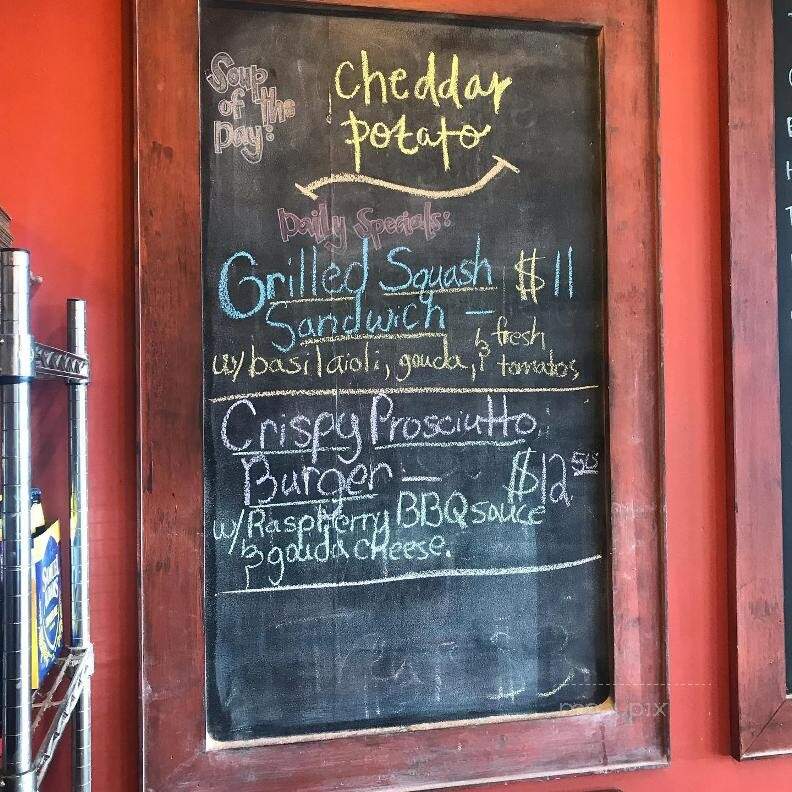 Soup
of the
Day:
cheddar
potato
Daily Specials:
Grilled Squash $11
Sandwich -
w/ basil aioli, gouda, & fresh
tomatos
Crispy Prosciutto
Burger - $12 50
w/ Raspberry BBQ sauce
& gouda cheese.